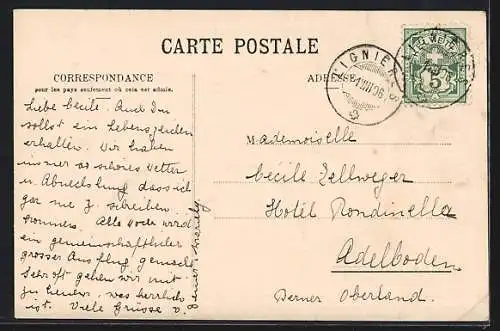 CARTE POSTALE
CORRESPONDANCE
pour les pays seulement où cela est admis.
ADRESSE
Liebe Cécile. Auch Du
sollst ein Lebenszeichen
erhalten. Wir haben
immer so schönes Wetter
u. Abwechslung dass ich
gar nie z. schreiben
komme. Alle Woche wird
ein gemeinschaftlicher
grosser Ausflug gemacht
Sehr oft gehen wir mit
was herrlich
ist. Viele Grüsse v.
Mademoiselle
Cécile Zellweger
Hotel Rondinella
Adelboden
Berner Oberland.